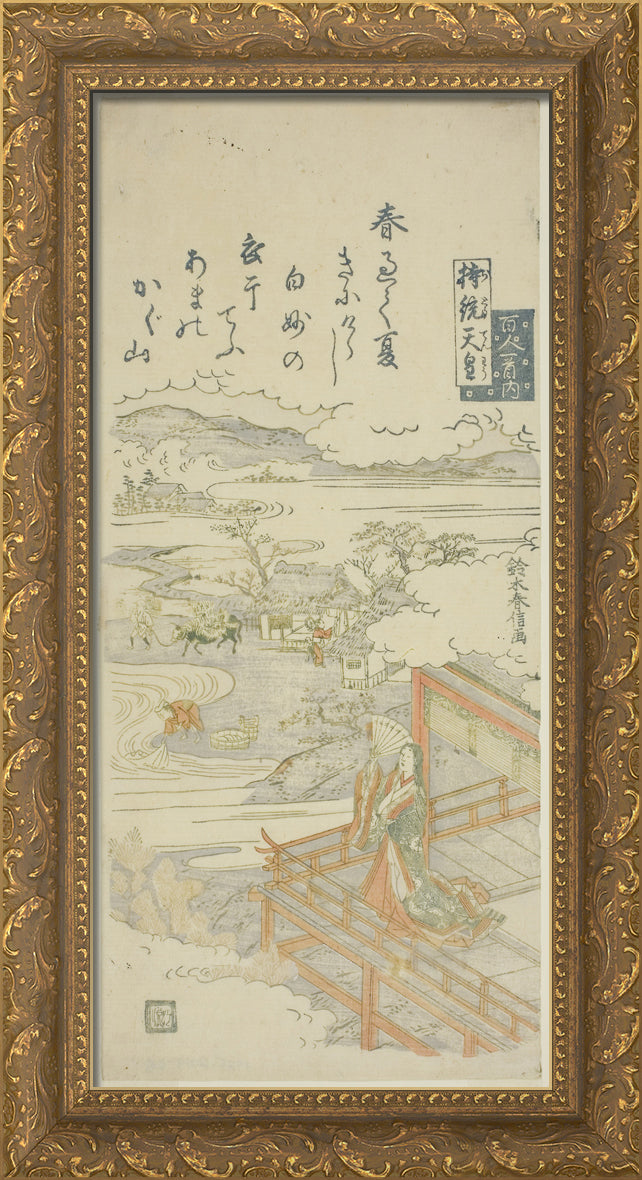 百人一首内
持統天皇
ぢとうてんわう
春過て夏
きにけらし
白妙の
衣干
てふ
あまの
かぐ山
鈴木春信画